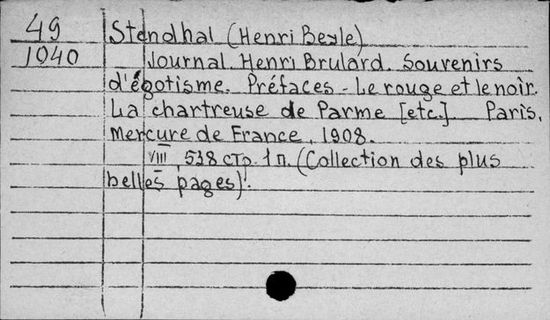 49 Stendhal (Henri Beyle)
1040 Journal. Henri Brulard. Souvenirs
d'égotisme. Préfaces - Le rouge et le noir.
La chartreuse de Parme [etc.] Paris,
Mercure de France, 1908.
VIII, 538 стр. 1 п. (Collection des plus
belles pages).